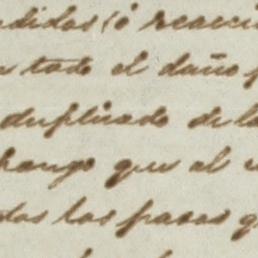 didas (ó reacci
todo el daño
duplicado de la
hango que al
das las pasas q